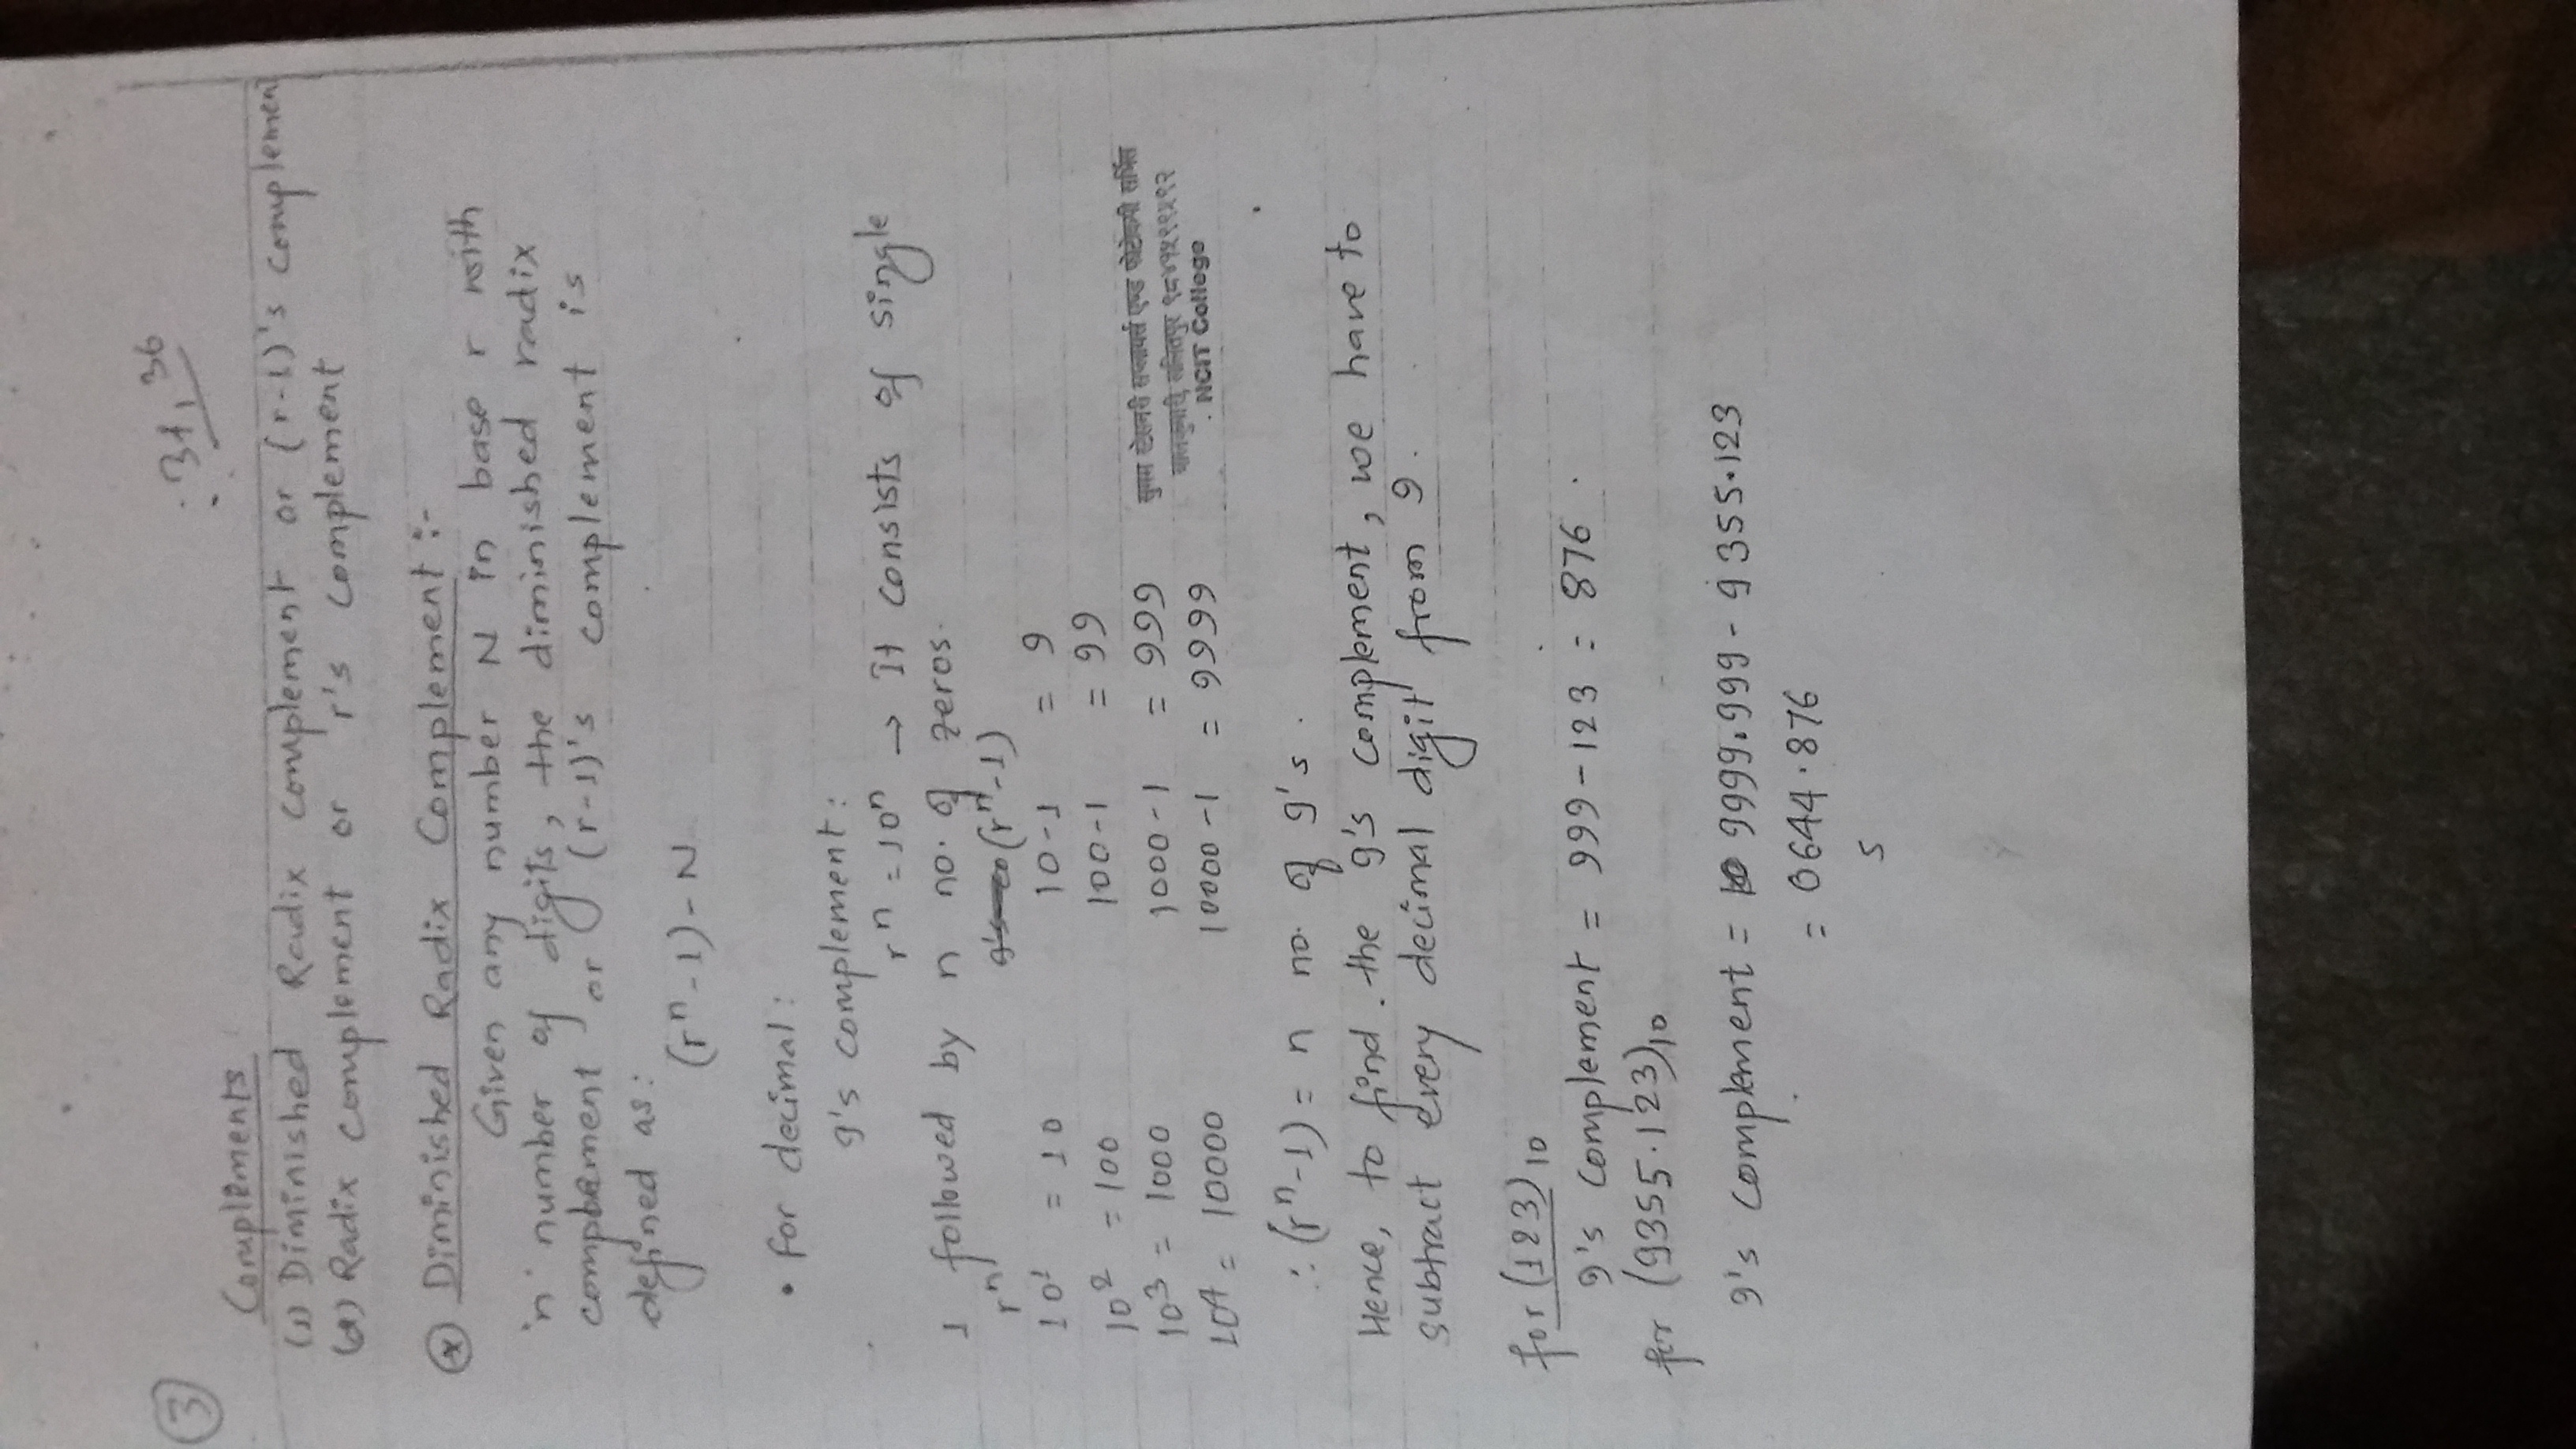 3
: 31, 36
Compliments
(1) Diminished Radix complement or (r-1)'s complement
(2) Radix complement or r's complement
* Diminished Radix Complement :-
Given any number N in base r with
'n' number of digits, the diminished radix
complement or (r-1)'s complement is
defined as:
(rⁿ-1)-N
• for decimal:
9's complement:
rⁿ = 10ⁿ → It consists of single
1 followed by n no. of zeros.
rⁿ (rⁿ-1)
10¹ = 10 10-1 = 9
10² = 100 100-1 = 99
10³ = 1000 1000-1 = 999
10⁴ = 10000 10000-1 = 9999
सुगम स्टेसनरी सप्लायर्स एण्ड फोटोकपी सर्भिस
बालकुमारी, ललितपुर ९८४१५९९५९२
NCIT College
∴ (rⁿ-1) = n no. of 9's.
Hence, to find the 9's complement, we have to
subtract every decimal digit from 9.
for (123)₁₀
9's complement = 999-123 = 876
for (9355.123)₁₀
9's complement = 9999.999 - 9355.123
= 0644.876
s